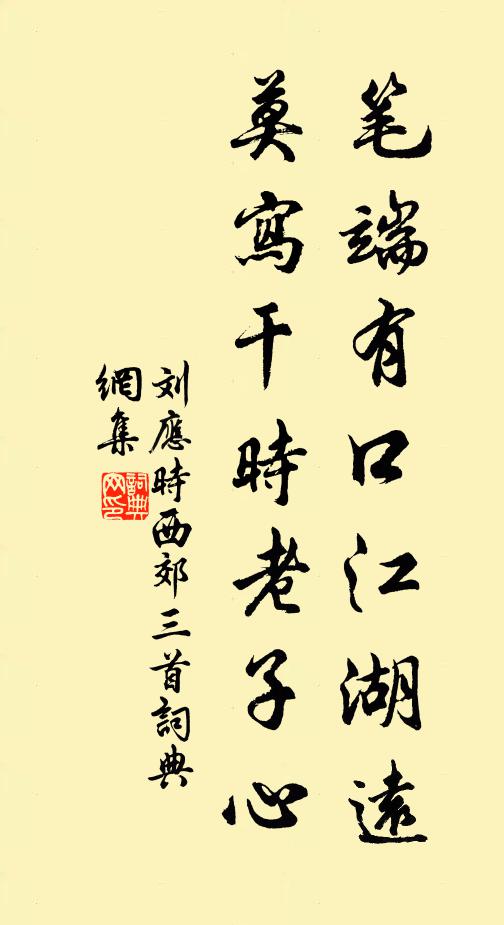 笔端有口江湖遠
莫寫干時老子心
刘應時西郊三首詞典
網集
詞典
网印